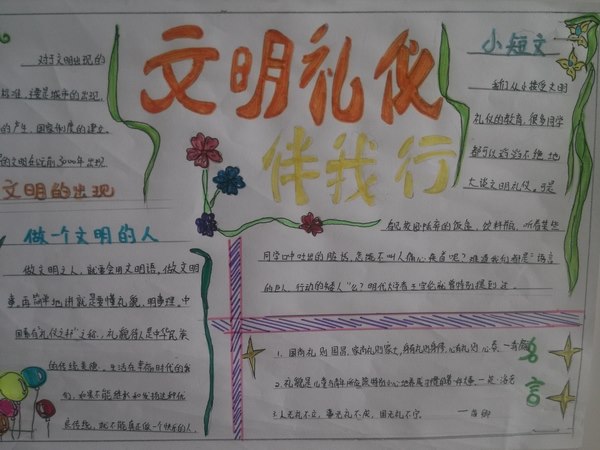 文明礼仪
伴我行
对于文明出现的
标准,主要是城市的出现,
的产生,国家制度的建立。
的文明在公元前3000年出现
文明的出现
做一个文明的人
做文明之人,就要会用文明语,做文明
事。再简单地讲就是要懂礼貌,明事理。中
国素有"礼仪之邦"之称,礼貌待人是中华民族
的传统美德。生活在幸福时代的
们,如果不能继承和发扬这种优
良传统,就不能真正做一个快乐的人。
小短文
我们从小接受文明
礼仪的教育,很多同学
都可以滔滔不绝地
大谈文明礼仪。可是
看见校园里的饭盒,饮料瓶,听着某些
同学口中吐出的脏话,怎能不叫人痛心疾首呢?难道我们都是"语言
的巨人,行动的矮人"么?明代大学者王守仁就曾特别提到过。
名言
1. 国尚礼则国昌,家尚礼则家大,身有礼则身修,心有礼则心泰。一颜元
2.礼貌是儿童与青年所应该特别小心地养成习惯的第一件大事。一约·洛克
3.人无礼不立,事无礼不成,国无礼不宁。一荀卿